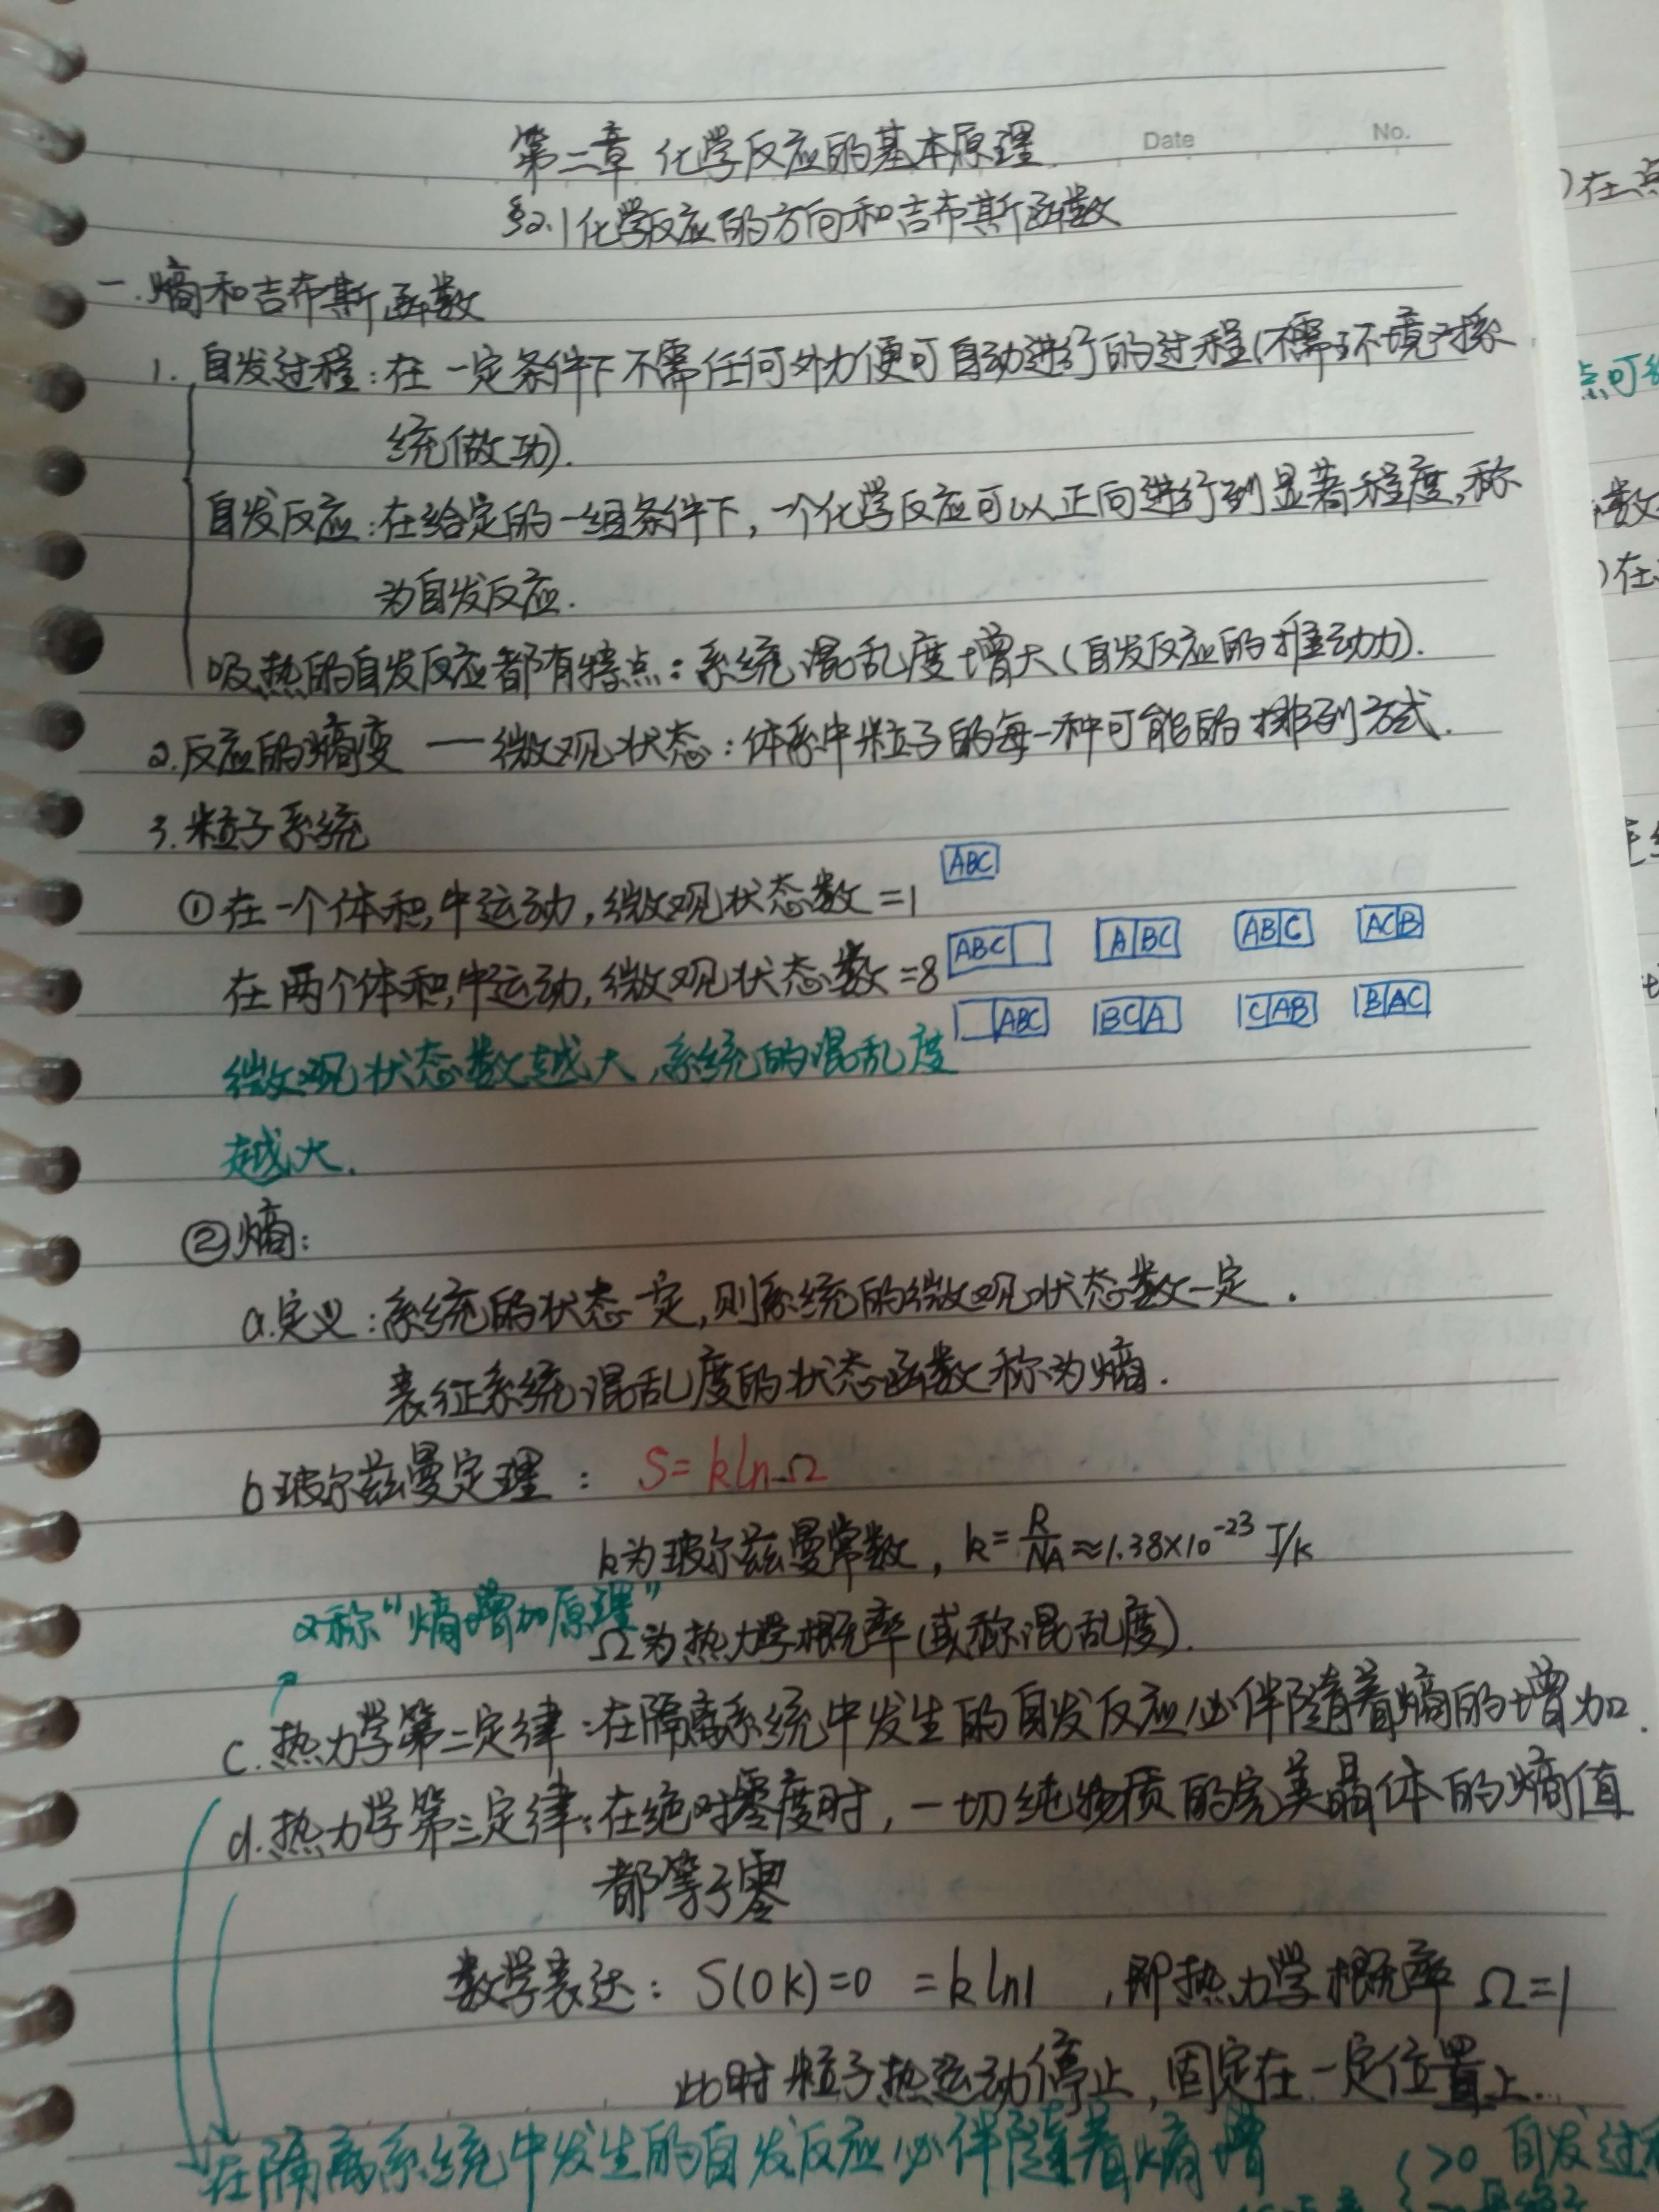 第二章 化学反应的基本原理.
Date No.
§2.1化学反应的方向和吉布斯函数
一.熵和吉布斯函数
1. 自发过程:在一定条件下不需任何外力便可自动进行的过程(不需环境对系
统做功).
自发反应:在给定的一组条件下,一个化学反应可以正向进行到显著程度,称
为自发反应.
吸热的自发反应都有特点:系统混乱度增大(自发反应的推动力).
2.反应的熵变 — 微观状态:体系中粒子的每一种可能的排列方式.
3.粒子系统
①在一个体积中运动,微观状态数=1 ABC
在两个体积中运动,微观状态数=8 ABC| A|BC AB|C AC|B
|ABC BC|A C|AB B|AC
微观状态数越大,系统的混乱度
越大.
②熵:
a.定义:系统的状态一定,则系统的微观状态数一定.
表征系统混乱度的状态函数称为熵.
b玻尔兹曼定理: S=klnΩ
k为玻尔兹曼常数, k=R/NA≈1.38×10⁻²³ J/k
又称“熵增加原理”
Ω为热力学概率(或称混乱度).
c.热力学第二定律:在隔离系统中发生的自发反应必伴随着熵的增加.
d.热力学第三定律:在绝对零度时,一切纯物质的完美晶体的熵值
都等于零
数学表达: S(0K)=0 =kln1 ,即热力学概率Ω=1
此时粒子热运动停止,固定在一定位置上..
在隔离系统中发生的自发反应必伴随着熵增 >0 自发过
)在点
点可
数
)在